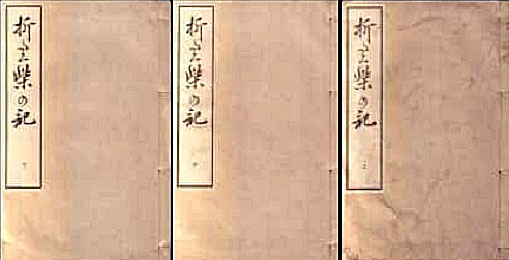 折たく柴の記
上
折たく柴の記
中
折たく柴の記
下